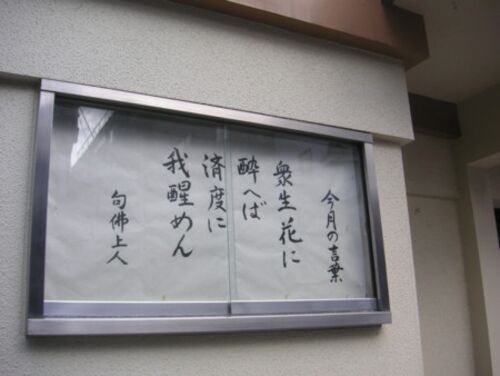 今月の言葉
衆生花に
酔へば
済度に
我醒めん
句佛上人